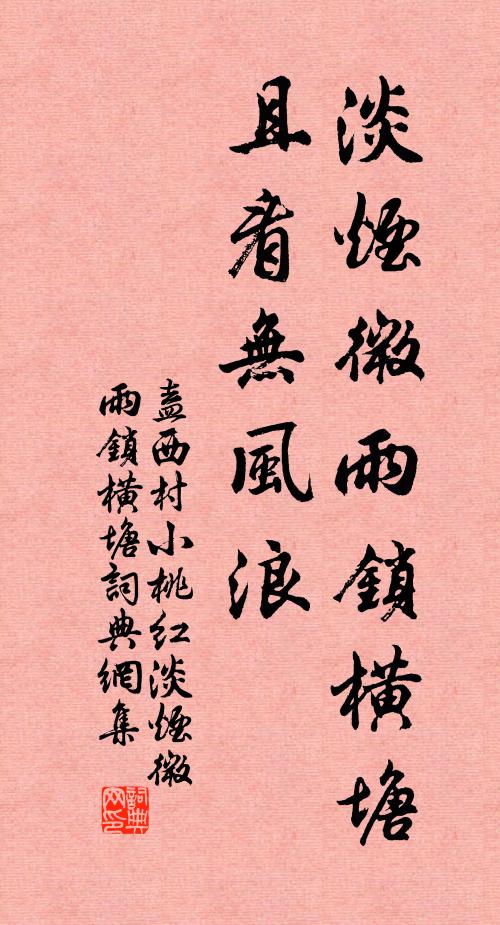 淡煙微雨鎖橫塘
且看無風浪
盍西村小桃紅淡煙微
雨鎖橫塘詞典網集
詞典网印